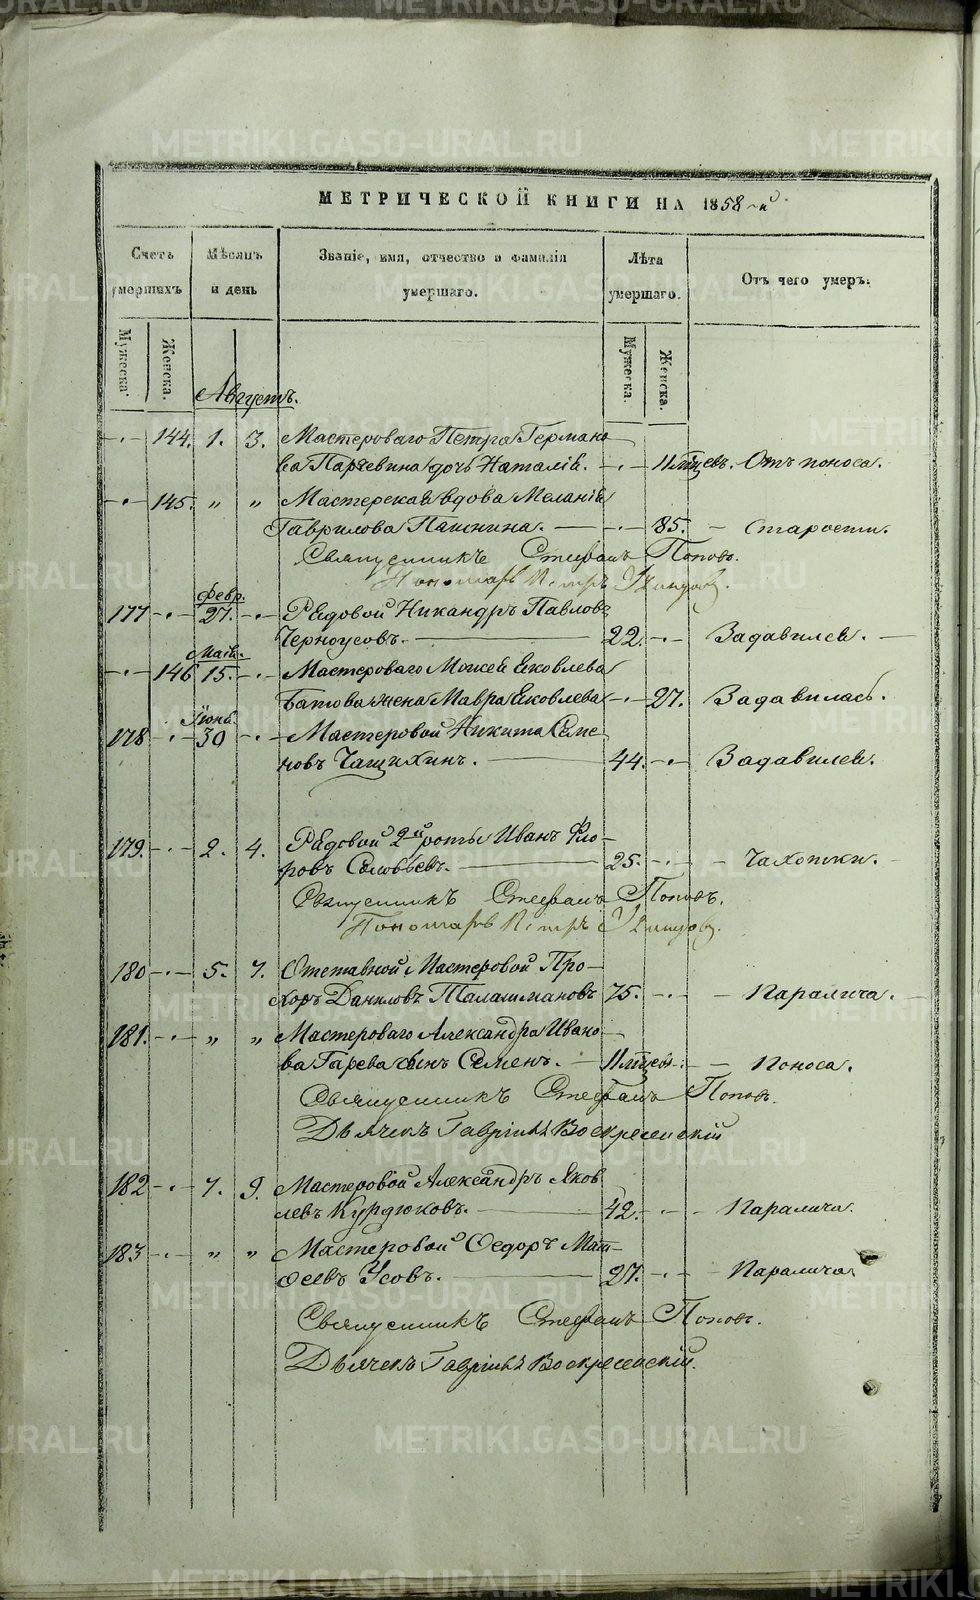 МЕТРИЧЕСКОЙ КНИГИ НА 1858-й
Счетъ умершихъ
Мѣсяцъ и день
Званіе, имя, отчество и фамилія умершаго.
Лѣта умершаго.
Отъ чего умеръ.
Мужеска.
Женска.
Мужеска.
Женска.
Августъ.
144. 1. 3. Мастероваго Петра Германо
ва дочь Наталія. 11 мѣцевъ. Отъ поноса.
145. „ „ Мастерская вдова Меланія
Гаврилова Пашнина. 85. Старости.
Священникъ Стефанъ Поповъ.
Пономарь Петръ
Февр.
177 27. Рядовой Никандръ Павловъ
Черноусовъ. 22. Задавился.
Маія.
146 15. Мастероваго Моисея Яковлева
Батова жена Мавра Яковлева 27. Задавилась.
Іюнь
178 30 Мастеровой Никита Семе
новъ Чащихинъ. 44. Задавился.
179. 2. 4. Рядовой 2й роты Иванъ Фло
ровъ Соловьевъ. 25. Чахотки.
Священникъ Стефанъ Поповъ.
Пономарь Петръ
180 5. 7. Отставной Мастеровой Про
хоръ Даниловъ Талашмановъ 75. Паралича.
181. „ „ Мастероваго Александра Ивано
ва Гарева сынъ Семенъ. 11 мѣцевъ. Поноса.
Священникъ Стефанъ Поповъ.
Дьячекъ Гавріилъ Воскресенскій
182 7. 9. Мастеровой Александръ Яков
левъ Курдюковъ. 42. Паралича.
183 „ „ Мастеровой Ѳедоръ Мат
ѳеевъ Усовъ. 27. Паралича
Священникъ Стефанъ Поповъ.
Дьячекъ Гавріилъ Воскресенскій.
METRIKI.GASO-URAL.RU